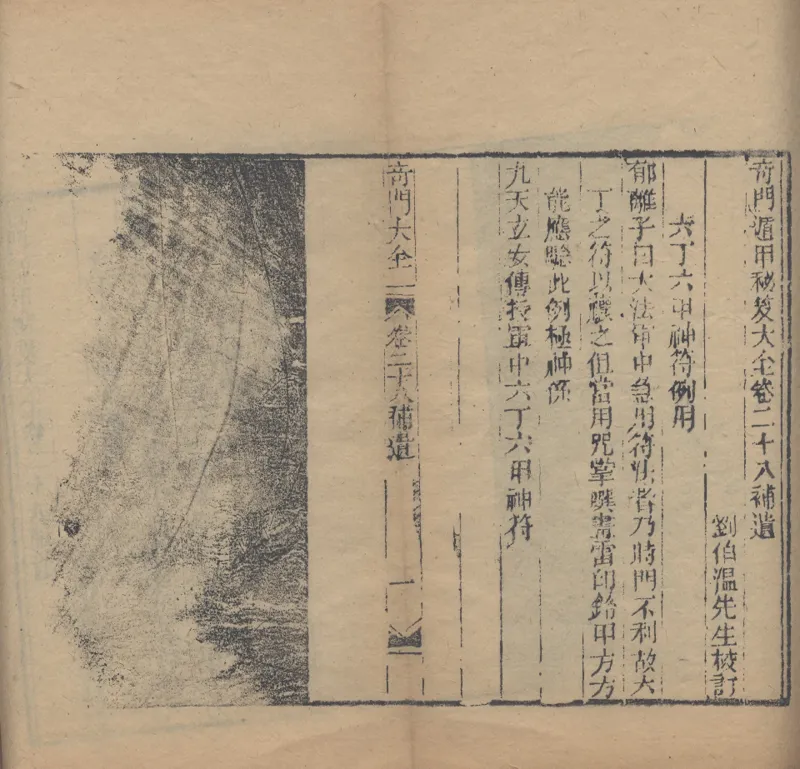 奇門遁甲秘笈大全卷二十八補遺
劉伯溫先生校訂
六丁六甲神符例用
郁離子曰大法軍中急用符法者乃時門不利故六
丁之符以禳之但當用咒掌噀書雷印銘甲方方
能應驗此例極神係
九天玄女傳授軍中六丁六甲神符
奇門大全
卷二十八補遺
一